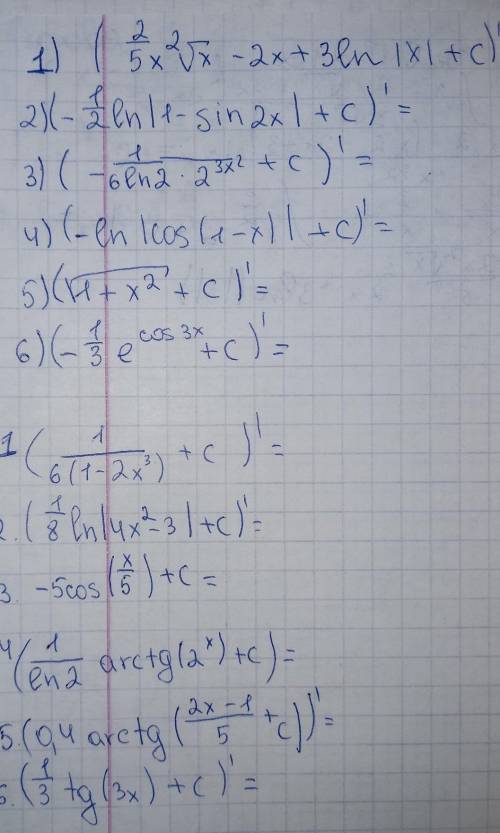 1) ( 2/5 x² √x - 2x + 3ln |x| + c)'
2) (- 1/2 ln|1 - sin 2x| + c)' =
3) (- 1/(6ln2 · 2^(3x²)) + c)' =
4) (-ln |cos (1-x)| + c)' =
5) (√(1 + x²) + c)' =
6) (- 1/3 e^(cos 3x) + c)' =
1 ( 1/(6(1-2x³)) + c )' =
2. ( 1/8 ln|4x² - 3| + c)' =
3. -5cos (x/5) + c =
4 ( 1/ln2 arctg (2^x) + c) =
5. (0,4 arctg ( (2x - 1)/5 + c))' =
6. ( 1/3 tg (3x) + c )' =